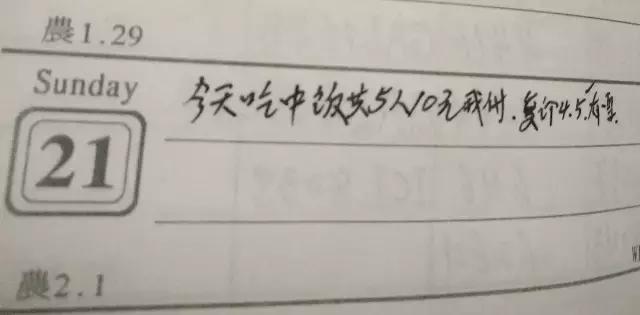 農1.29
Sunday
今天吃中饭共5人10元我付.复印4.5.有
21
農2.1